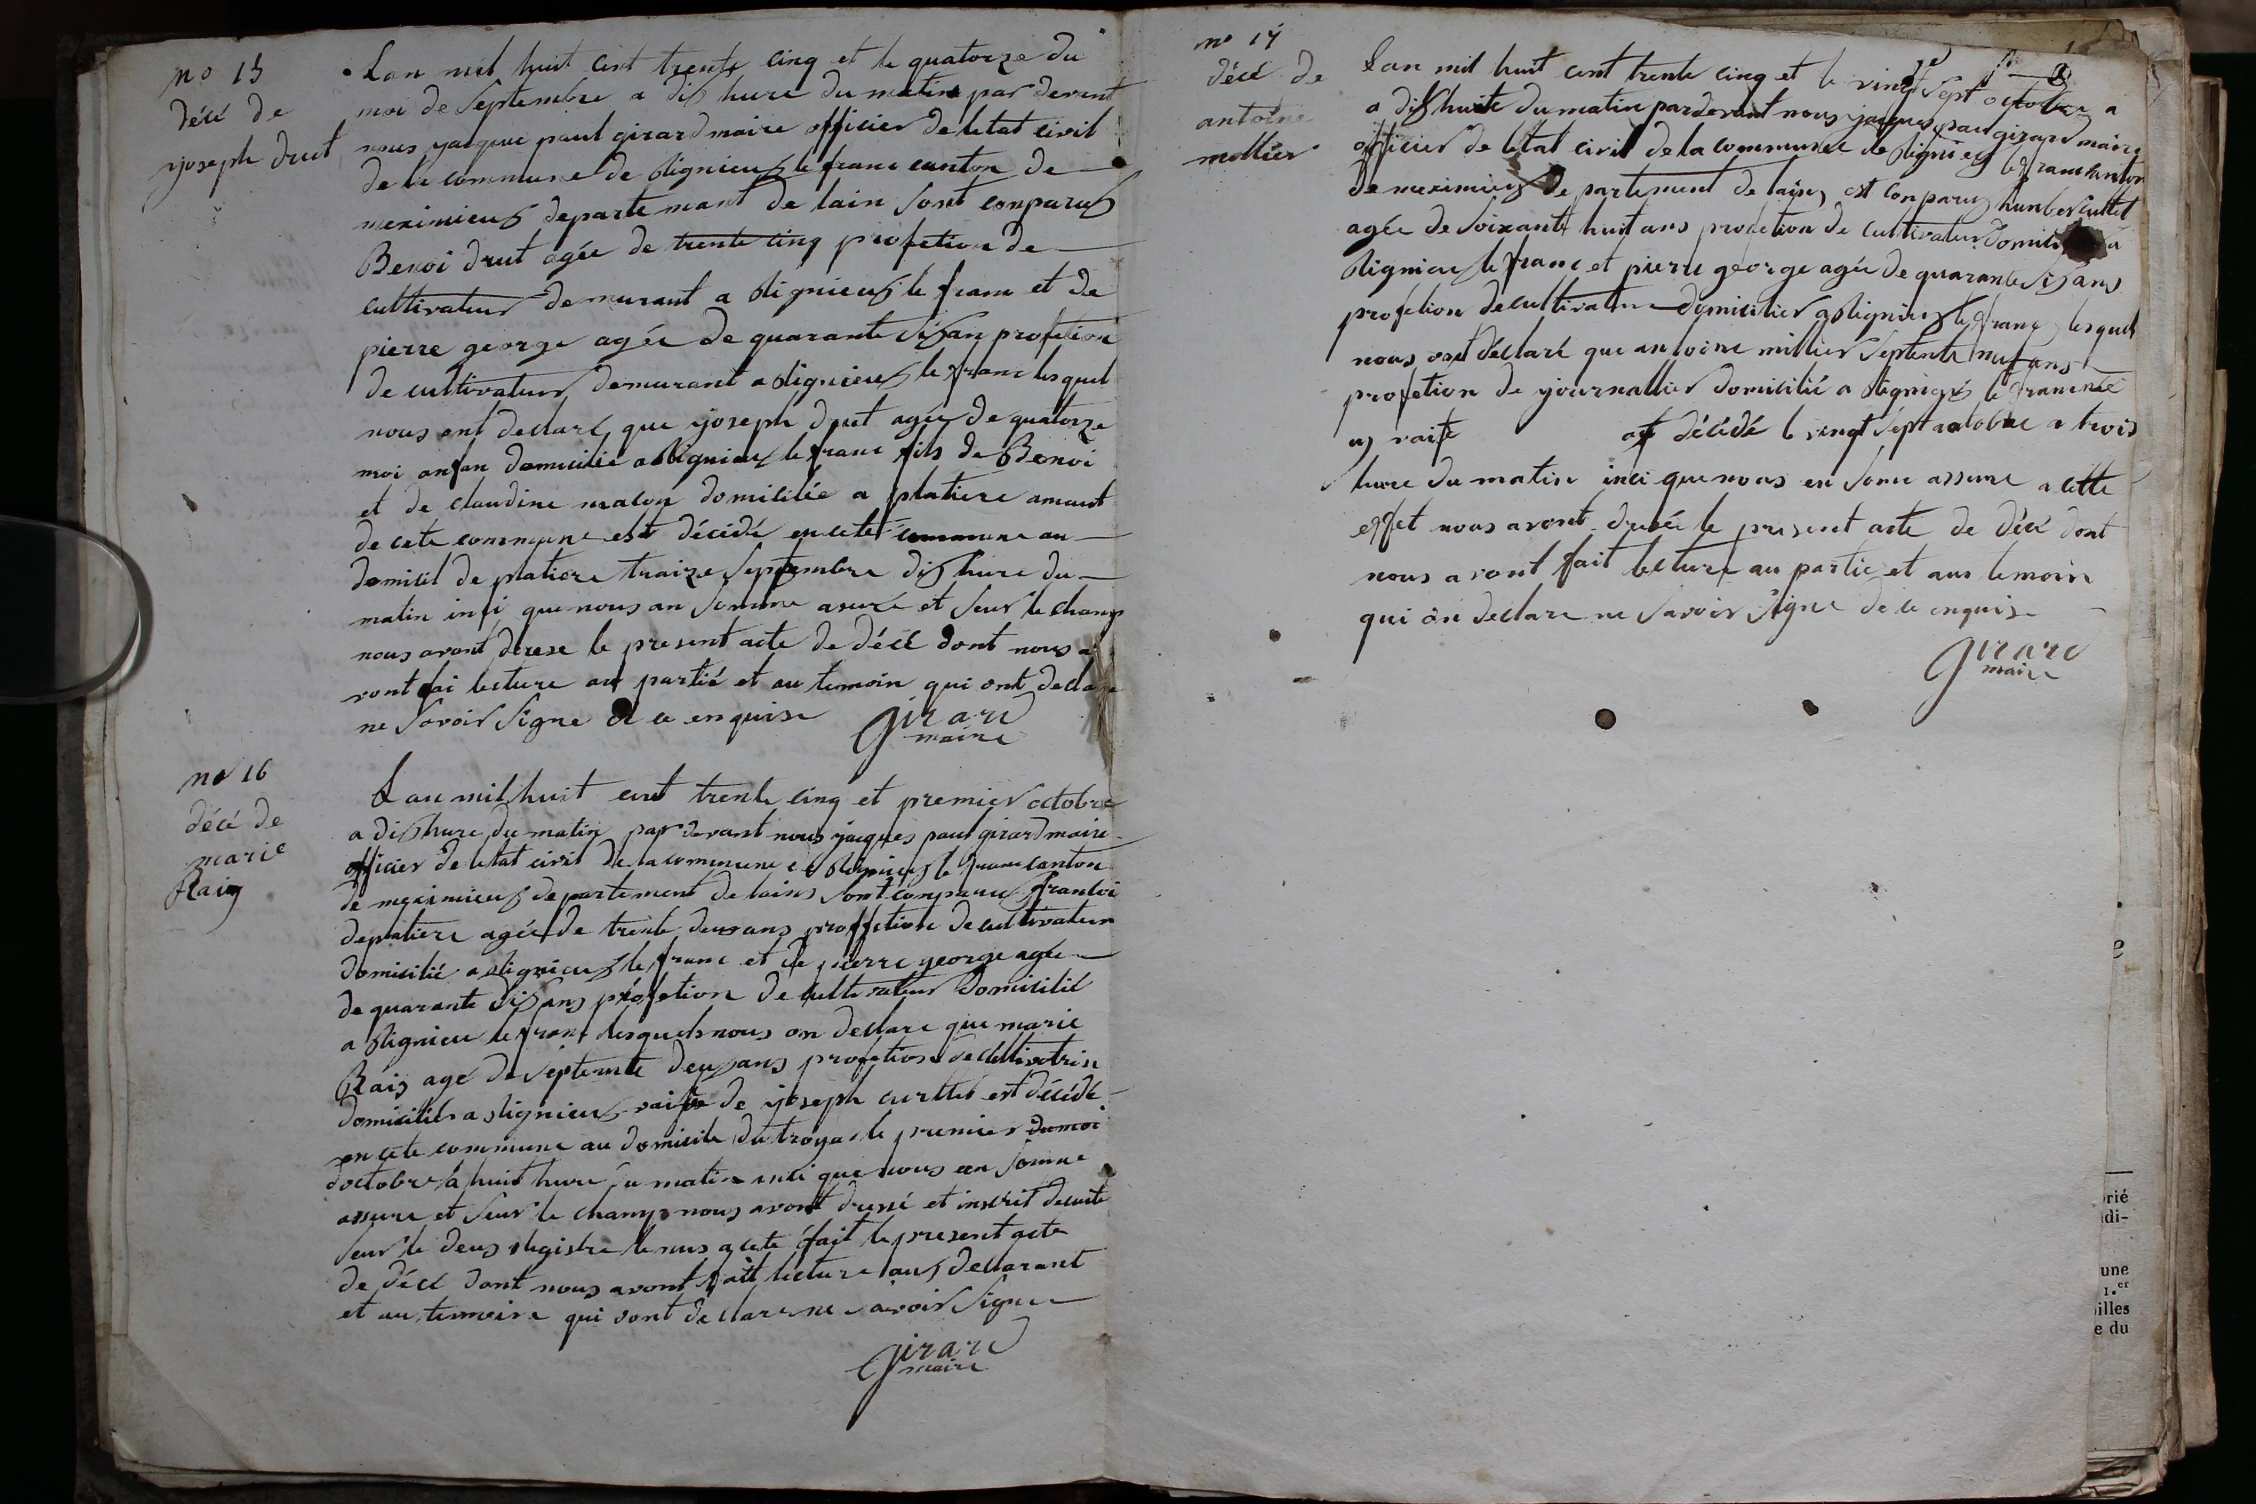 no 15
décé de
yjoseph drut
Lan mil huit cent trente cinq et le quatorze du
moi de Septembre a dix hure du matin par devent
nous yacque paul girard maire officier de letat civil
de la commune de Rignieux le franc canton de
meximieux departemant de lain sont conparus
Benoi drut agée de trente cinq profetion de
cultivateur demurant a Rignieux le franc et de
pierre george agée de quarante six an profetion
de cultivateur demurant a Rignieux le franc lesquel
nous ont declaré que yjoseph drut agée de quatorze
moi anfan domicilié a Rignieux le franc fils de Benoi
et de claudine macon domiciliée a platiere amant
de cete commune est décédé en cete commune au
domicil de platiere traize Septembre dix hure du
matin insi que nous an somme asuré et seur le champ
nous avont drese le present acte de décé dont nous a
vont fai lecture au partié et au temoin qui ont declare
ne Savoir Signe de ce enquise
girard
maire
no 16
décé de
marie
Raix
Lan mil huit cent trente cinq et premier octobre
a dix hure du matin par devant nous yjacques paul girard maire
officier de letat civil de la commune de Rignieux le franc canton
de meximieux departement de lains sont conparus francoi
deplatiere agée de trente deux ans proffetion de cultivateur
domicilié a Rignieux le franc et de pierre george agée
de quarante six ans profetion de cultivateur domicilié
a Rignieu le franc lesquels nous on declare que marie
Raix age de septente deux ans profetion de cultivatrise
domiciliée a Rignieux vaife de yjoseph curtet est décédé
en cete commune au domicile du troya le premier du moi
doctobre a huit hure du matin insi que nous en somme
assure et seur le champ nous avont dressé et inscrit de suite
seur le deux Registre tenus a cete éfait le present acte
de décé dont nous avont fait lecture aux declarant
et au temoire qui sont declare ne savoir Signe
girard
maire
no 17
décé de
antoine
mollier
Lan mil huit cent trente cinq et le vingt sept octobre a
a dix huite du matin pardevant nous yjacques paul girard maire
officier de letat civil de la commune de Rignieux le franc canton
de meximieux departement de lains est conparus hunber cuttet
agée de soixante huit ans profetion de cultivateur domicilié a
Rignieux le franc et pierre george agée de quarante six ans
profetion de cultivateur domicilier a Rignieux le franc lesquel
nous ont déclaré que antoine millier septente neuf ans
profetion de yjournallier domicilié a Rignieux le franc née
us vaife at décédé le vingt sept octobre a trois
hure du matin insi que nous en some assure a cette
effet nous avont dressée le present acte de décé dont
nous avont fait lecture au partie et aux temoin
qui on declare ne savoir Signe de ce enquise
girard
maire
prié
idi-
une
1.er
illes
e du